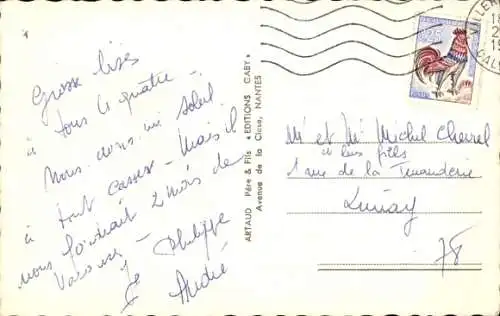 Grosse bises
à tous le quatre -
Nous avons un soleil
à tout casser - Mais il
nous faudrait 2 mois de
Vacances -
Philippe
André
ARTAUD Père & Fils « EDITIONS GABY »
Avenue de la Close, NANTES
0,25
Mr et Me Michel Chevrel
et leurs fils
1 rue de la Tinanderie
Lunay
78